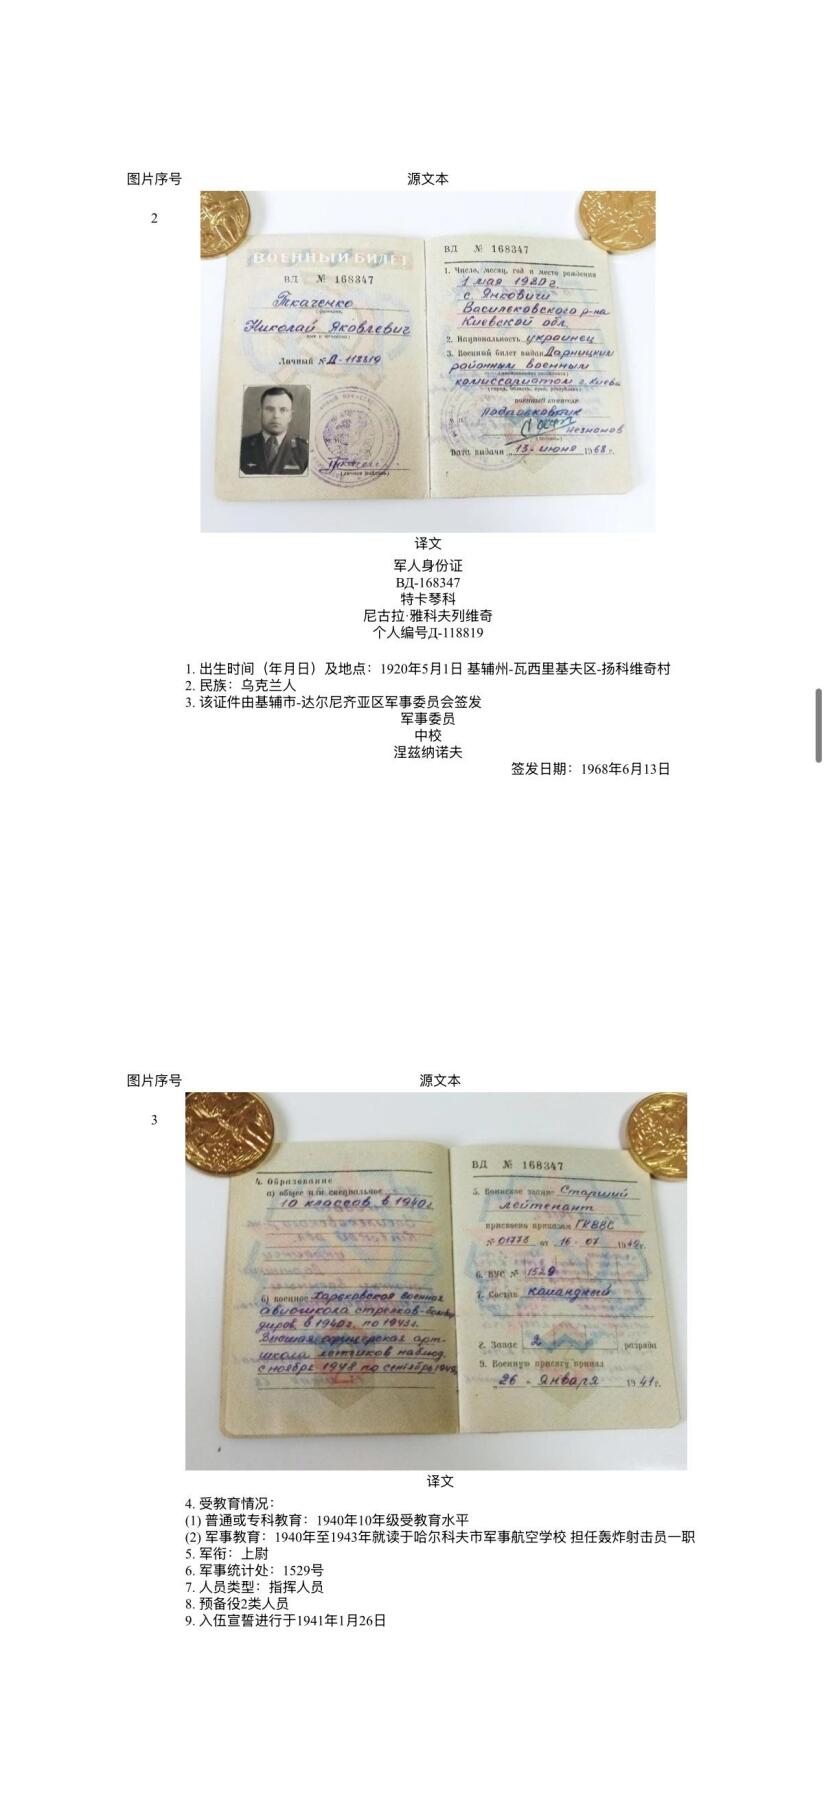 图片序号
源文本
2
ВОЕННЫЙ БИЛЕТ
ВД № 168347
Ткаченко
(фамилия)
Николай Яковлевич
(имя и отчество)
Личный № Д-118819
(личная подпись)
ВД № 168347
1. Число, месяц, год и место рождения
1 мая 1920 г.
с. Янковичи
Василековского р-на
Киевской обл.
2. Национальность украинец
3. Военный билет выдан Дарницким
районным военным
комиссариатом г. Киева
(город, область, край, республика)
военный комиссар
подполковник
Незнанов
(подпись)
Дата выдачи 13 - июня 1968 г.
译文
军人身份证
ВД-168347
特卡琴科
尼古拉·雅科夫列维奇
个人编号Д-118819
1. 出生时间（年月日）及地点：1920年5月1日 基辅州-瓦西里基夫区-扬科维奇村
2. 民族：乌克兰人
3. 该证件由基辅市-达尔尼齐亚区军事委员会签发
军事委员
中校
涅兹纳诺夫
签发日期：1968年6月13日
图片序号
源文本
3
4. Образование
а) общее или специальное
10 классов в 1940г
б) военное Харьковская военная
авиошкола стрелков-бомбар
диров в 1940г. по 1943г.
Высшая офицерская арт-
школа летчиков наблюд.
с ноября 1948 по сентябрь 1949
ВД № 168347
5. Воинское звание Старший
лейтенант
присвоено приказом ГКВВС
№ 01778 от 16 - 07 1949г.
6. ВУС № 1529
7. Состав командный
8. Запас 2 разряда
9. Военную присягу принял
26 - января 1941 г.
译文
4. 受教育情况：
(1) 普通或专科教育：1940年10年级受教育水平
(2) 军事教育：1940年至1943年就读于哈尔科夫市军事航空学校 担任轰炸射击员一职
5. 军衔：上尉
6. 军事统计处：1529号
7. 人员类型：指挥人员
8. 预备役2类人员
9. 入伍宣誓进行于1941年1月26日